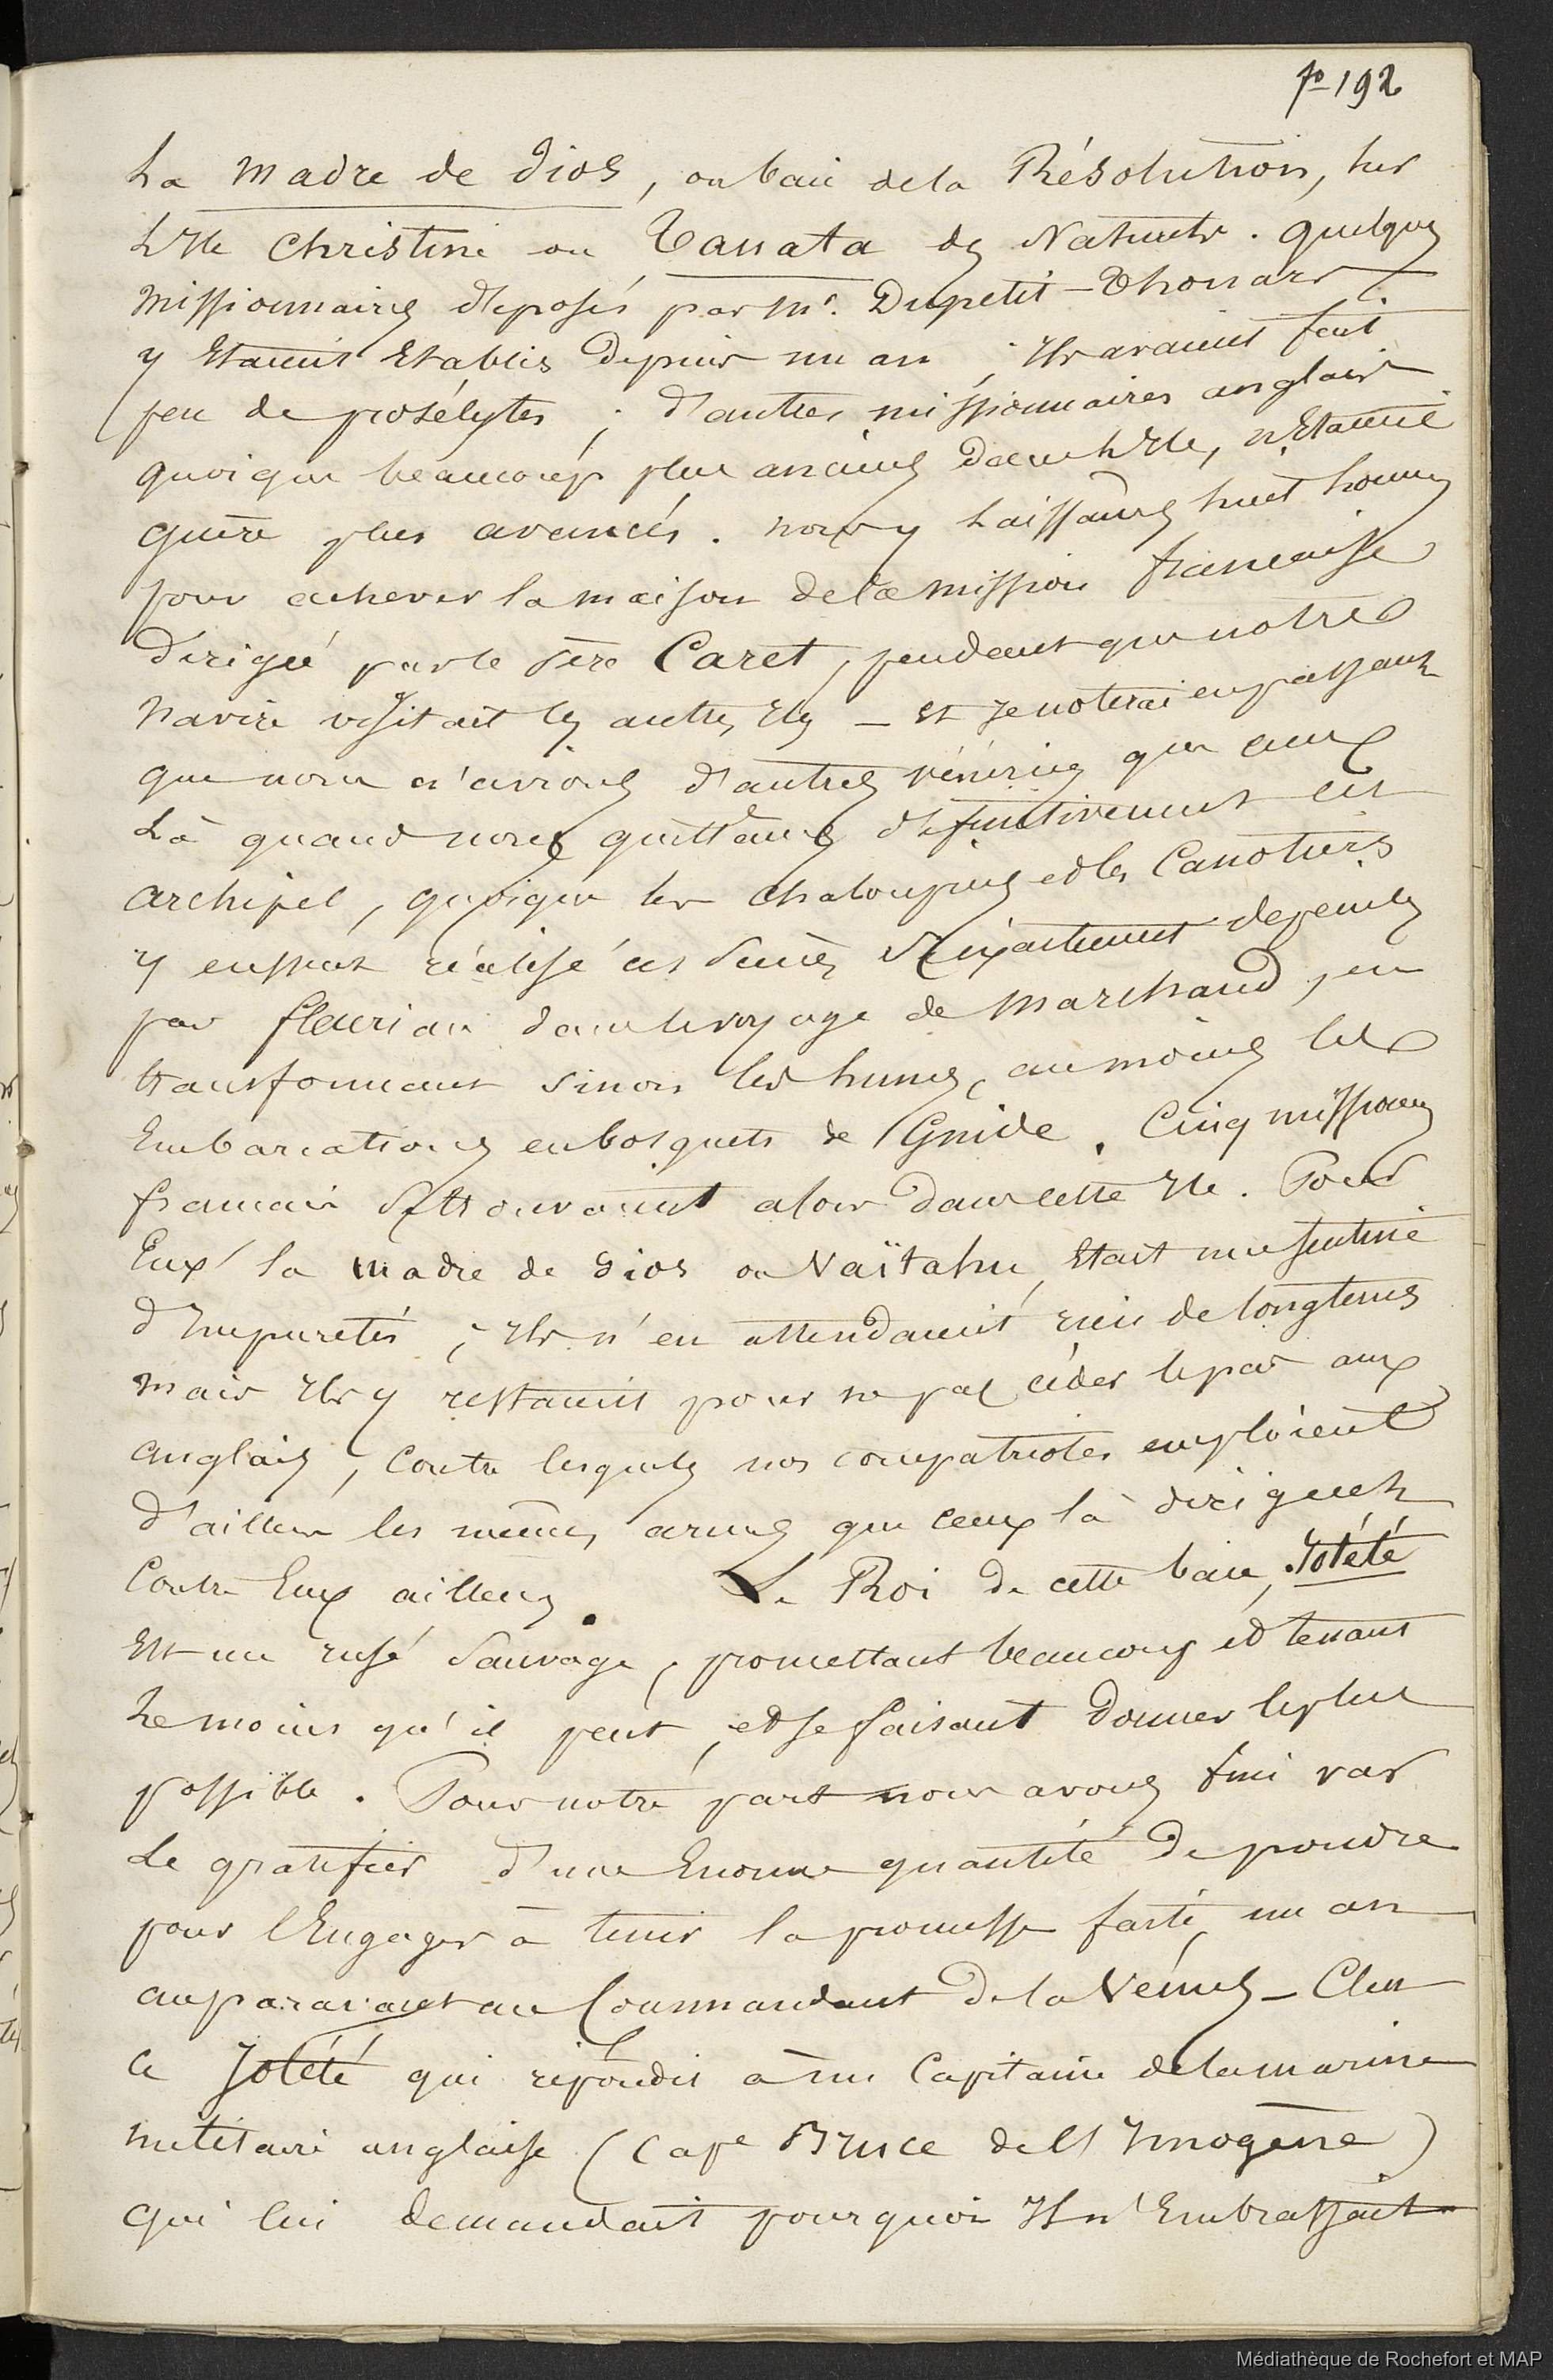 fo 192
La Madre de Dios, ou baie de la Résolution, sur
L'Ile Christine ou Taouata des Naturels. Quelques
Missionnaires déposés par Mr. Dupetit-Thouars
y Etaient Etablis depuis un an ; Ils avaient fait
peu de prosélytes ; d'autres missionnaires anglais
quoique beaucoup plus anciens dans L'Ile, n'Etaient
guère plus avancés. nous y Laissames huit hommes
pour achever la maison de la mission française
dirigée par le père Caret, pendant que notre
Navire visitait les autres Iles - Et Je noterai en passant
que nous n'avions d'autres vénériens que ceux
Là quand nous quittâmes définitivement cet
archipel, quoique les chaloupiers et les Canotiers
y eussent réalisé ces scènes
par fleuriau dans le voyage de Marchand, en
transformant sinon les hunes, au moins les
Embarcations en bosquets de Gnide. Cinq missionnres
français se trouvaient alors dans cette Ile. Pour
Eux la Madre de Dios ou Vaïtahu, Etait une sentine
d'Impuretés ; Ils n'en attendaient rien de longtems
mais Ils y restaient pour ne pas céder le pas aux
anglais, contre lesquels nos compatriotes emploient
d'ailleurs les mêmes armes que ceux là dirigent
Contre Eux ailleurs. Le Roi de cette baie, Iotété
Est un rusé Sauvage, promettant beaucoup et tenant
Le moins qu'il peut, et se faisant donner le plus
possible. Pour notre part nous avons fini par
Le gratifier d'une Enorme quantité de poudre
pour l'Engager à tenir la promesse faite, un an
auparavant au Commandant de la Vénus - C'est
ce Iotété qui répondit à un Capitaine de la marine
militaire anglaise (Cape Bruce de L'Imogène)
qui lui demandait pourquoi Il n'Embrassait
Médiathèque de Rochefort et MAP